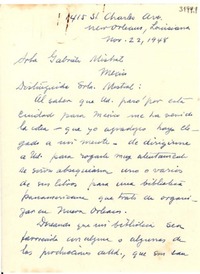 1415 St Charles Ave.
New Orleans, Louisiana
Nov. 22, 1948
Sta Gabriela Mistral
Distinguida Srta. Mistral:
Al saber que Ud. pasó por esta
ciudad para Mexico me ha venido
la idea - que yo agradezco haya lle-
gado a mi mente - de dirigirme
a Ud. para rogarle muy
uno o varios
de sus libros para una biblioteca
panamericana que trato de organi-
zar en Nueva Orleans.
Deseando que mi biblioteca sea
favorecida con alguna o algunas de
las producciones de Ud., que son tan